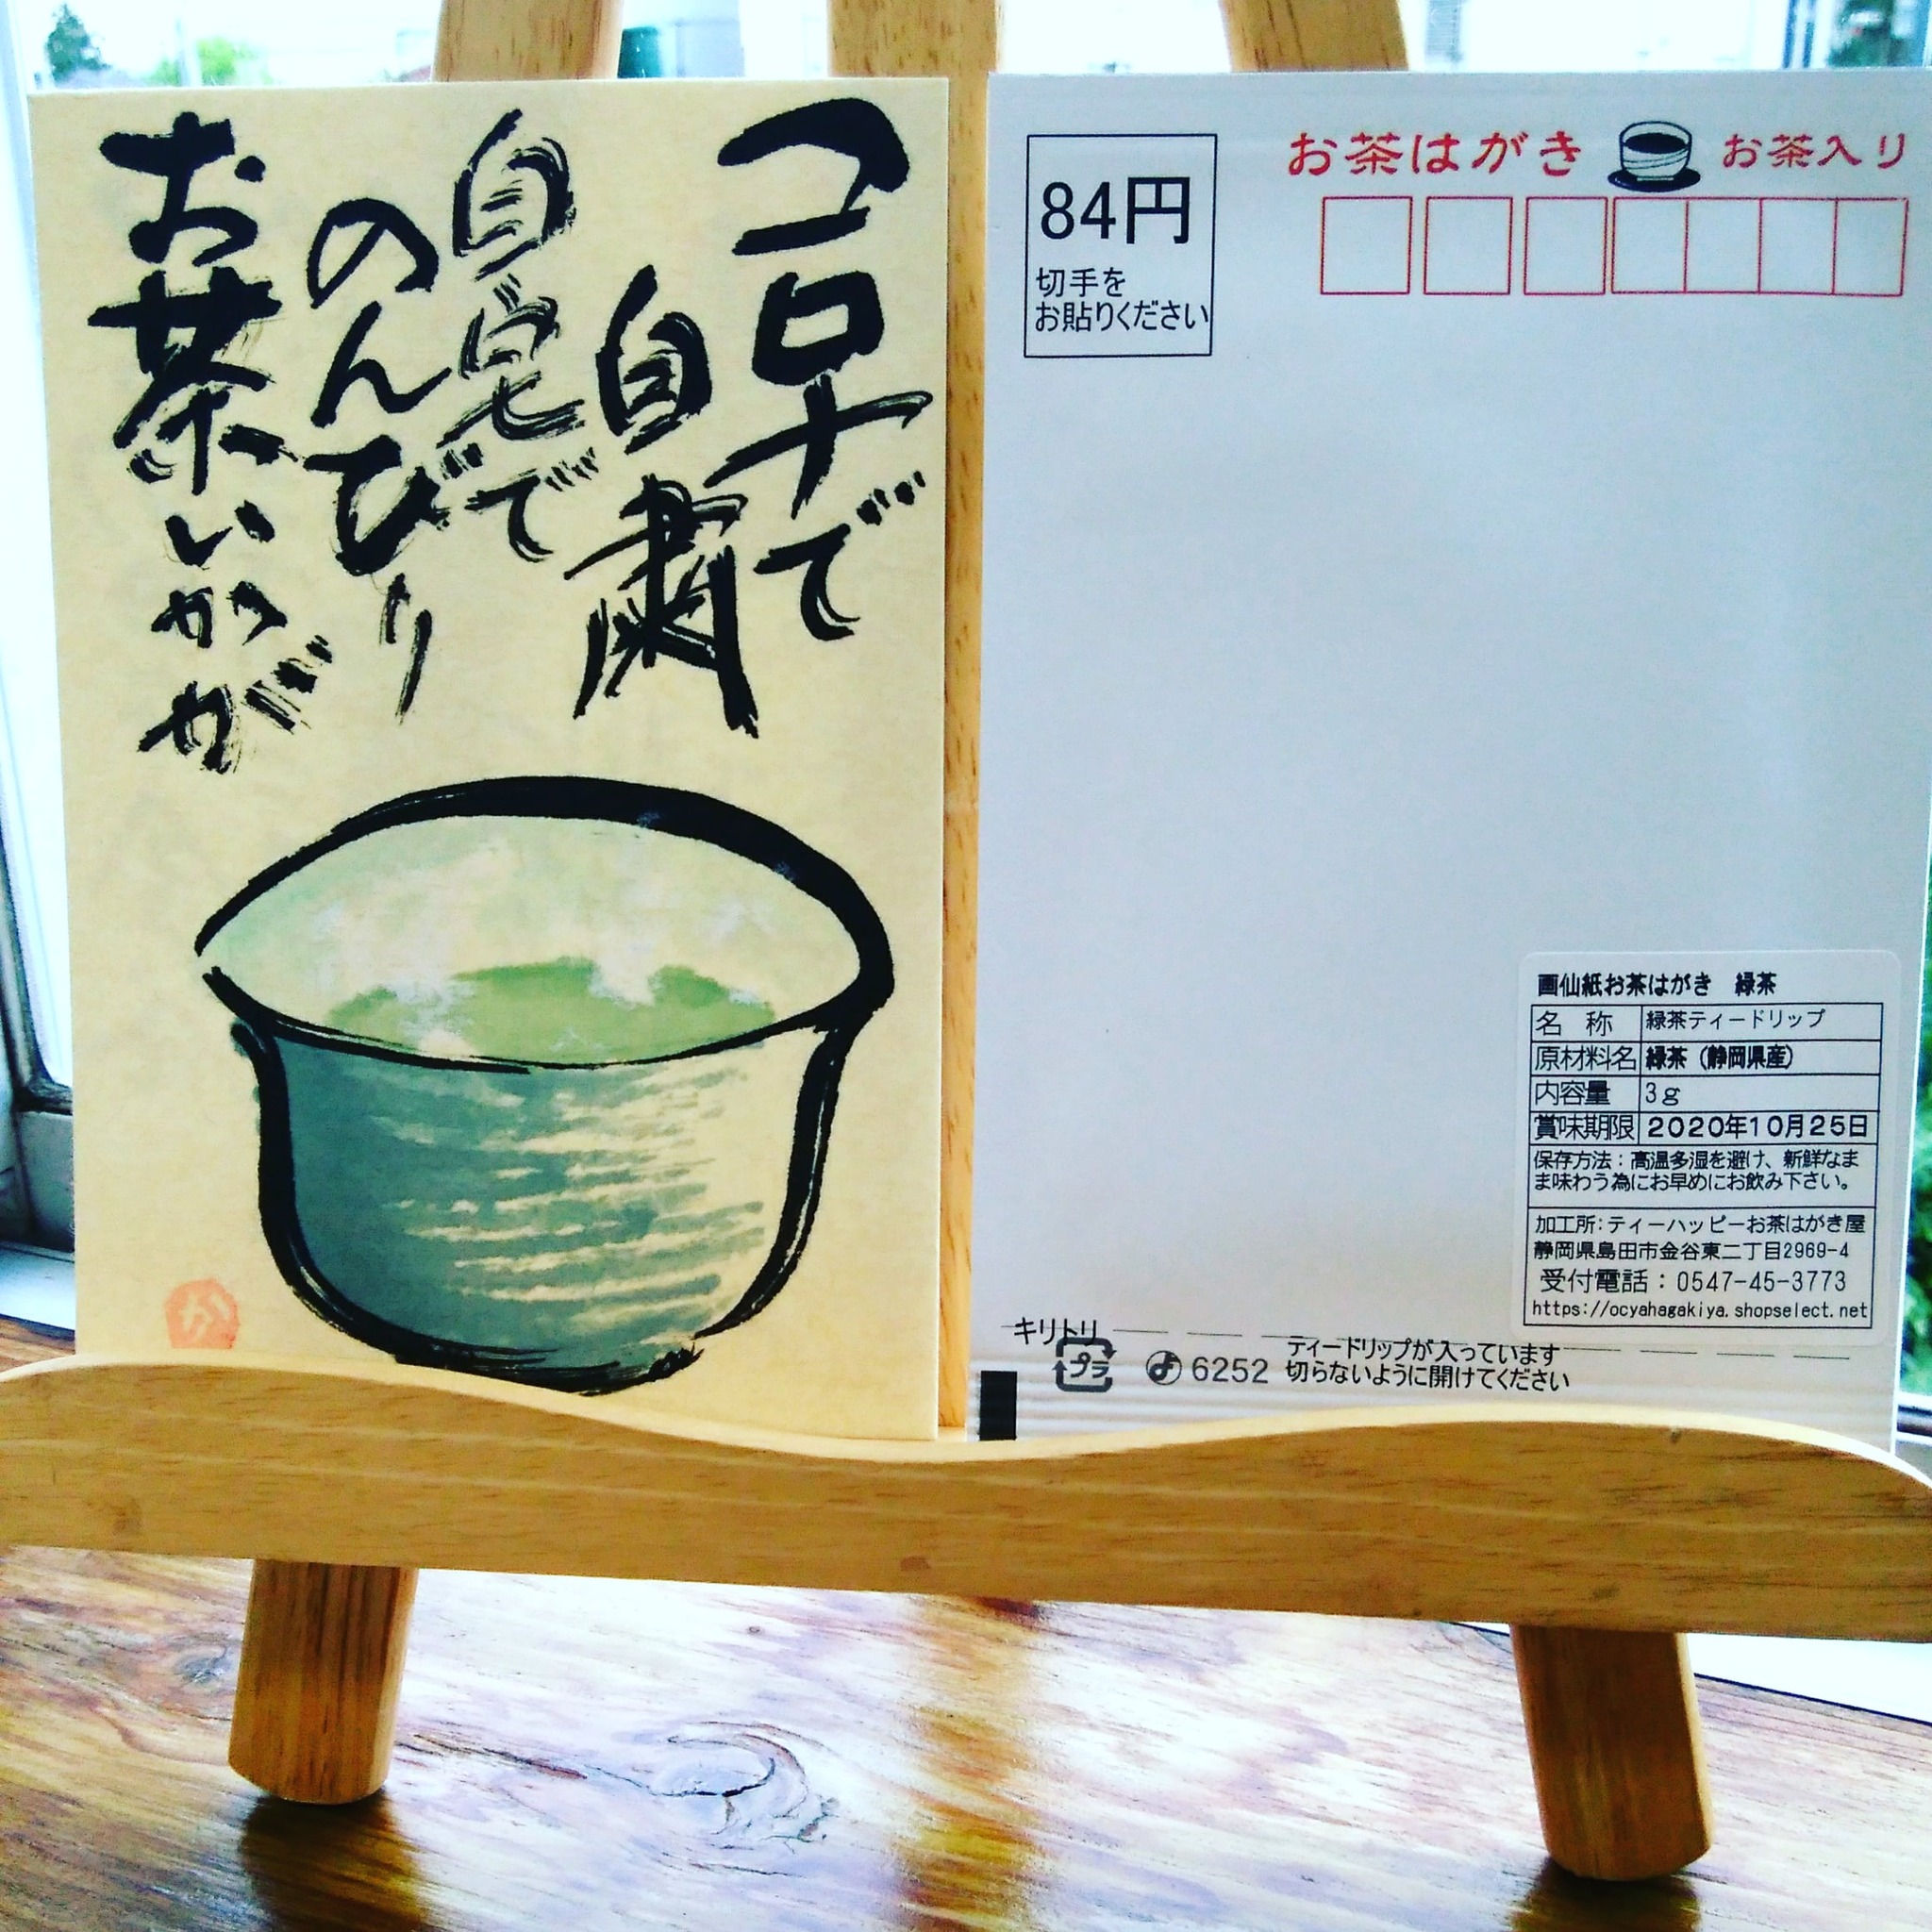 コロナで
自粛
自宅で
のんびり
お茶いかが
か
お茶はがき お茶入り
84円
切手を
お貼りください
画仙紙お茶はがき 緑茶
名 称 緑茶ティードリップ
原材料名 緑茶 (静岡県産)
内容量 3g
賞味期限 2020年10月25日
保存方法:高温多湿を避け、新鮮なま
ま味わう為にお早めにお飲み下さい。
加工所:ティーハッピーお茶はがき屋
静岡県島田市金谷東二丁目2969-4
受付電話:0547-45-3773
https://ocyahagakiya.shopselect.net
キリトリ
プラ
6252
ティードリップが入っています
切らないように開けてください